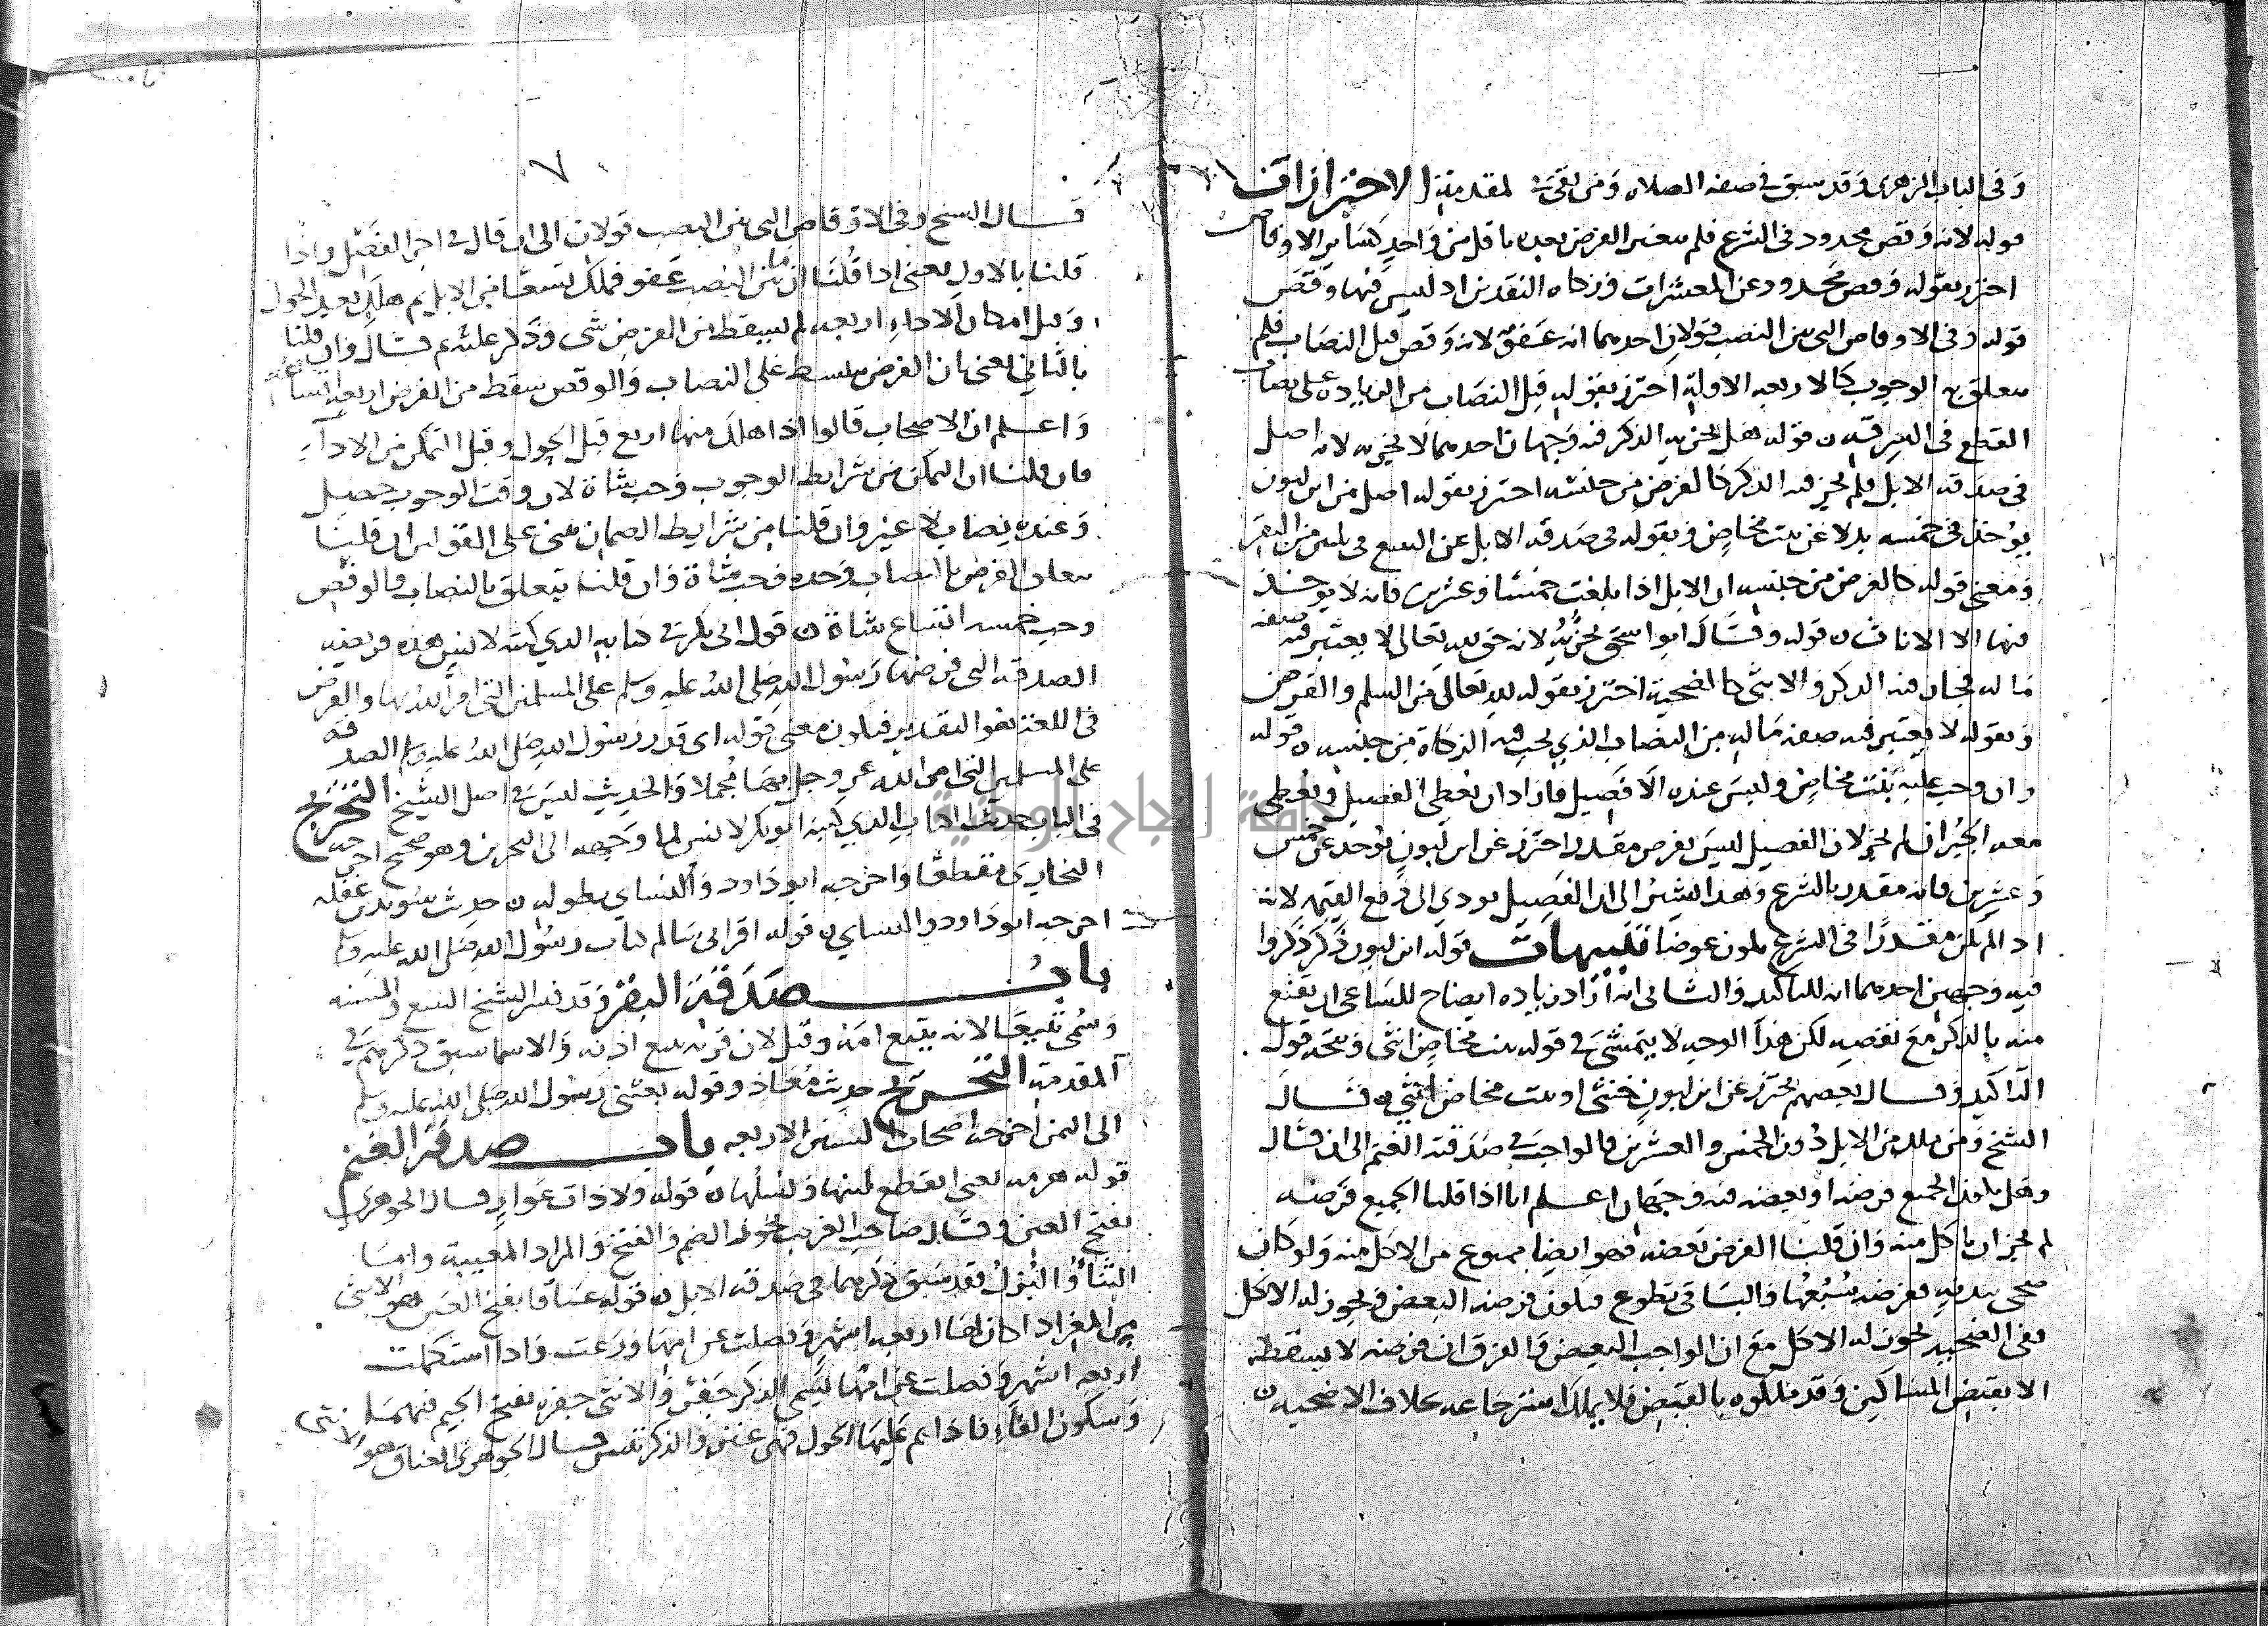 وفي الباب الزهري وقد سبق في صفه الصلاه ومن بقى في المقدمة الاحترازات
قوله لانه وقص محدود في الشرع فلم يتغير الفرض بعده باقل من واحد كساير الاوقاص
احترز بقوله وقص محدود عن المعشرات وزكاه النقدين اد ليس فيها وقص
قوله وفي الاوقاص التي بين النصب قولان احدهما انه عفو لانه وقص قبل النصاب فلم
يتعلق به الوجوب كالاربعه الاولة احترز بقوله قبل النصاب من الزياده على نصاب
القطع في السرقه ن قوله هل يجزيه الذكر فيه وجهان احدهما لا يجزيه لانه اصل
في صدقه الابل فلم يجز فيه الذكر كالفرض من جنسه احترز بقوله اصل من ابن لبون
يوخذ في خمسه بدلا عن بنت مخاض وبقوله في صدقه الابل عن التبيع في ثلثين من البقر
ومعنى قوله كالفرض من جنسه ان الابل اذا بلغت خمسا وعشرين فانه لا يوخذ
فيها الا الاناث ن قوله وقال ابو اسحق يجزيه لانه حق لله تعالى لا يعتبر فيه صفه
ماله فجاز فيه الذكر والانثى كالاضحية احترز بقوله لله تعالى من السلم والقرض
وبقوله لا يعتبر فيه صفه ماله من النصاب الذي يجب فيه الزكاة من جنسه ن قوله
وان وجب عليه بنت مخاض وليس عنده الا فصيل فاراد ان يعطي الفصيل ويعطي
معه الجبران لم يجز لان الفصيل ليس بفرض مقدر احترز عن ابن لبون يوخذ عن خمس
وعشرين فانه مقدر بالشرع وهذا يشير الى ان الفصيل يودي الى دفع القيمه لانه
اد الم يكن مقدرا في الشرع يكون عوضا تنبيهات قوله ابن لبون ذكر ذكروا
فيه وجهين احدهما انه للتاكيد والثاني انه اراد زياده ايضاح للساعي ان يقنع
منه بالذكر مع نقصه لكن هذا الوجه لا يتمشى في قوله بنت مخاض انثى ويتجه قول
التاكيد وقال بعضهم يحترز عن ابن لبون خنثى او بنت مخاض خنثى ن قال
الشيخ ومن ملك من الابل دون الخمس والعشرين فالواجب في صدقته الغنم الى ان قال
وهل يكون الجميع فرضه او بعضه فيه وجهان اعلم انا اذا قلنا الجميع فرضه
لم يجز ان ياكل منه وان قلنا الفرض بعضه فهو ايضا ممنوع من الاكل منه ولو كان
ضحى ببدنه ففرضه سبعها والباقي تطوع فيكون فرضه البعض ويجوز له الاكل
ففي الضحيه يجوز له الاكل مع ان الواجب البعض والفرق ان فرضه لا يسقط
الا بقبض المساكين وقد ملكوه بالقبض فلا يملك استرجاعه بخلاف الاضحيه ن
٧
قال الشيخ وفي الاوقاص التي بين النصب قولان الى ان قال في اخر الفصل واذا
قلنا بالاول يعني اذا قلنا ان ما بين النصب عفو فملك تسعا من الابل ثم هلك بعد الحول
وقبل امكان الاداء اربعه لم يسقط من الفرض شي وذكر علته ثم قال وان قلنا
بالثاني يعني بان الفرض ينبسط على النصاب والوقص سقط من الفرض اربعه اتساعه
واعلم ان الاصحاب قالوا اذا هلك منها اربع قبل الحول وقبل التمكن من الاداء
فان قلنا ان التمكن من شرايط الوجوب وجب شاة لان وقت الوجوب حصل
وعنده نصاب لا غير وان قلنا من شرايط الضمان ينبني على القولين ان قلنا
يتعلق الفرض بالنصاب وحده فيجب شاة وان قلنا يتعلق بالنصاب والوقص
وجب خمسه اتساع شاة ن قول ابي بكر في كتابه الذي كتبه لانس هذه فريضه
الصدقه التي فرضها رسول الله صلى الله عليه وسلم على المسلمين التي امر الله بها والفرض
في اللغة هو التقدير فيكون معنى قوله اي قدر رسول الله صلى الله عليه وسلم الصدقه
على المسلمين التي امر الله عز وجل بها مجملا والحديث ليس في اصل الشيخ التخريج
في الباب حديث الكتاب الذي كتبه ابو بكر لانس لما وجهه الى البحرين وهو صحيح اخرجه
البخاري مقطعا واخرجه ابو داود والنساي بطوله ن حديث سويد بن غفله
اخرجه ابو داود والنساي ن قوله اقراني سالم كتاب رسول الله صلى الله عليه وسلم
باب صدقة البقر وقد فسر الشيخ التبيع والمسنه
وسمي تبيعا لانه يتبع امه وقيل لان قرنه يتبع اذنه والاسما سبق ذكرهم في
المقدمة التخريج حديث معاذ وقوله بعثني رسول الله صلى الله عليه وسلم
الى اليمن اخرجه اصحاب السنن الاربعه باب صدقة الغنم
قوله هرمه يعني انقطع لبنها ونسلها ن قوله ولا ذات عوار قال الجوهري
بفتح العين وقال صاحب الغريب يجوز الضم والفتح والمراد المعيبة واما
الثنا والبزل فقد سبق ذكرهما في صدقه الابل ن قوله عناقا بفتح العين وهو الانثى
من المعز اد اكان لها اربعه اشهر وفصلت عن امها ورعت واذا استكملت
اربعه اشهر وفصلت عن امها يسمى الذكر جفر والانثى جفره بفتح الجيم فيهما
وسكون الفاء فاذا تم عليها الحول فهي عنز والذكر تيس قال الجوهري العناق هو الانثى
جامعة النجاح الوطنية